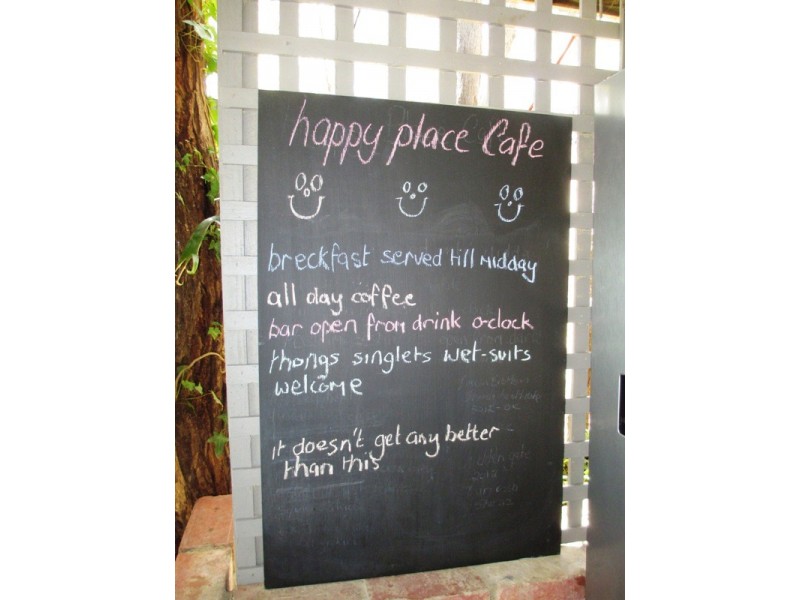 happy place Cafe
breckfast served till midday
all day coffee
bar open from drink o-clock
thongs singlets wet-suits
welcome
it doesn't get any better
than this